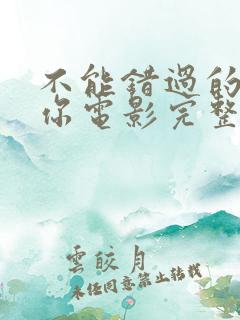 不能错過的
你電影完整
雲皎月
未经同意禁止转载